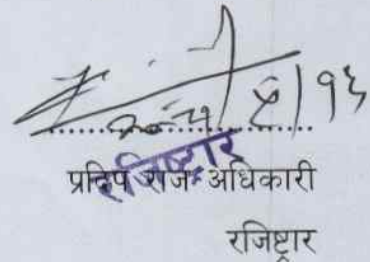 ५/१६
रजिष्ट्रार
प्रदिप राज अधिकारी
रजिष्ट्रार